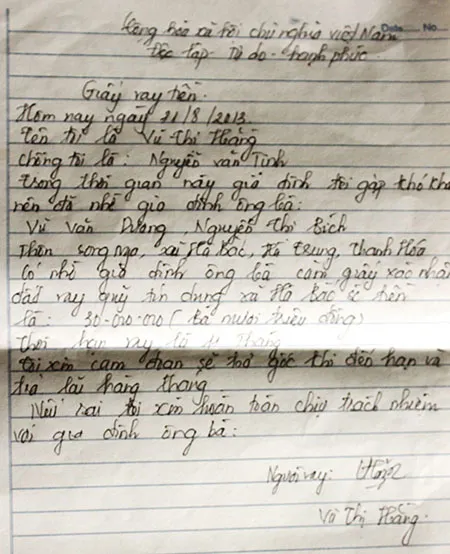 Cộng hòa xã hội chủ nghĩa việt Nam
Date No
Độc lập - Tự do - hạnh phúc.
Giấy vay tiền.
Hôm nay ngày 21/8/2013.
Tên tôi là Vũ Thị Hằng
Chồng tôi là: Nguyễn văn Tình
trong thời gian này gia đình tôi gặp khó khă
nên đã nhờ gia đình ông bà:
Vũ Văn Dương, Nguyễn Thị Bích
Thôn song nga, xã Hà Bắc, Hà Trung, Thanh Hóa
có nhờ gia đình ông bà cầm giấy xác nhận
vay quỹ tín dụng xã Hà Bắc số tiền
là: 30.000.000 (ba mươi triệu đồng)
Thời hạn vay là tháng
tôi xin cam đoan sẽ trả gốc khi đến hạn và
trả lãi hàng tháng
Nếu sai tôi xin hoàn toàn chịu trách nhiệm
với gia đình ông bà:
Người vay:
Vũ Thị Hằng.